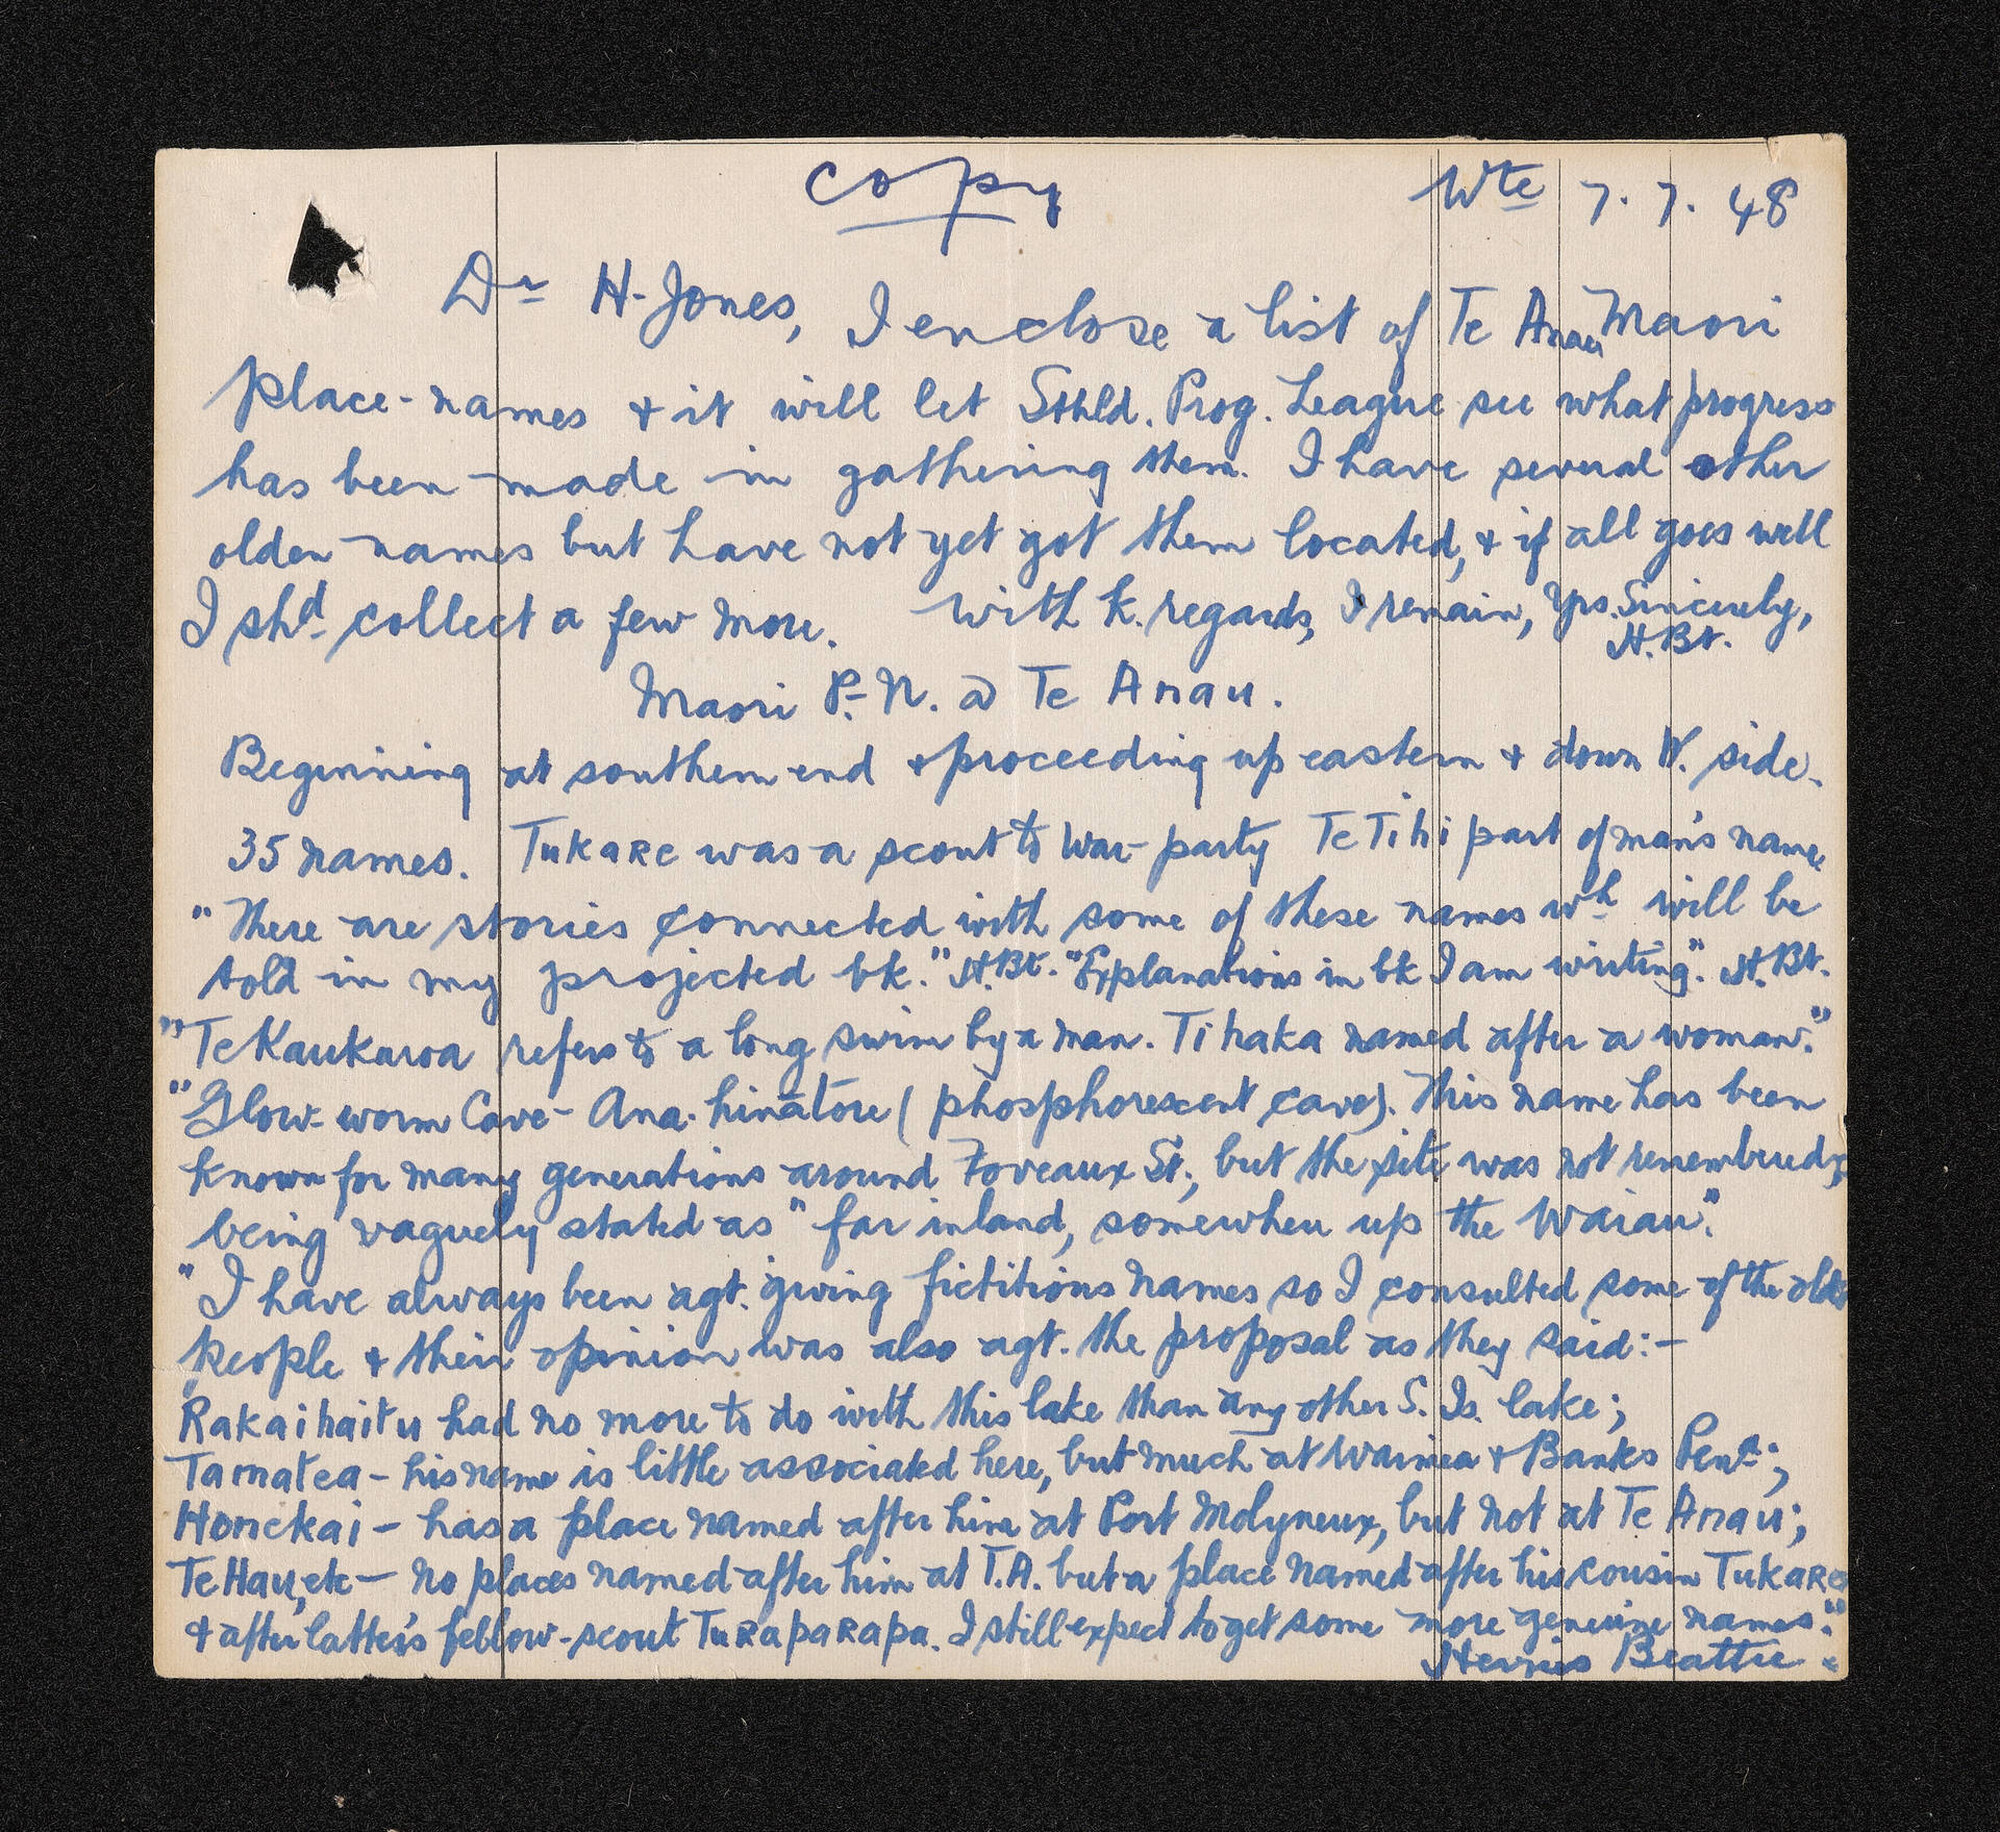 copy
Wte 7. 7. 48
Dr H. Jones, I enclose a list of Te Anau Maori
place-names & it will let Sthld. Prog. League see what progress
has been made in gathering them. I have several other
olden names but have not yet got them located, & if all goes well
I shd collect a few more. With k. regards, I remain, Yrs. Sincerely,
H.Bt.
Maori P.-N. @ Te Anau.
Beginning at southern end & proceeding up eastern & down W. side.
35 names. Tukare was a scout to war-party Te Tihi part of man's name
"There are stories connected with some of these names wh will be
told in my projected bk." H.Bt. "Explanations in bk I am writing". H.Bt.
"Te Kaukaroa refers to a long swim by a man. Tihaka named after a woman."
"Glow-worm Cave - Ana-hinātore (phosphorescent cave). This name has been
known for many generations around Foveaux St., but the site was not remembered,
being vaguely stated as "far inland, somewhere up the Waiau".
"I have always been agt. giving fictitious names so I consulted some of the older
people & their opinion was also agt. the proposal as they said:-
Rakaihaitu had no more to do with this lake than any other S. Is. lake;
Tamatea - his name is little associated here, but much at Waimea & Banks Pena.;
Honekai - has a place named after him at Port Molyneux, but not at Te Anau;
Te Hau, etc - no places named after him at T.A. but a place named after his cousin Tukare
& after latter's fellow-scout Turaparapa. I still expect to get some more genuine names."
Herries Beattie.